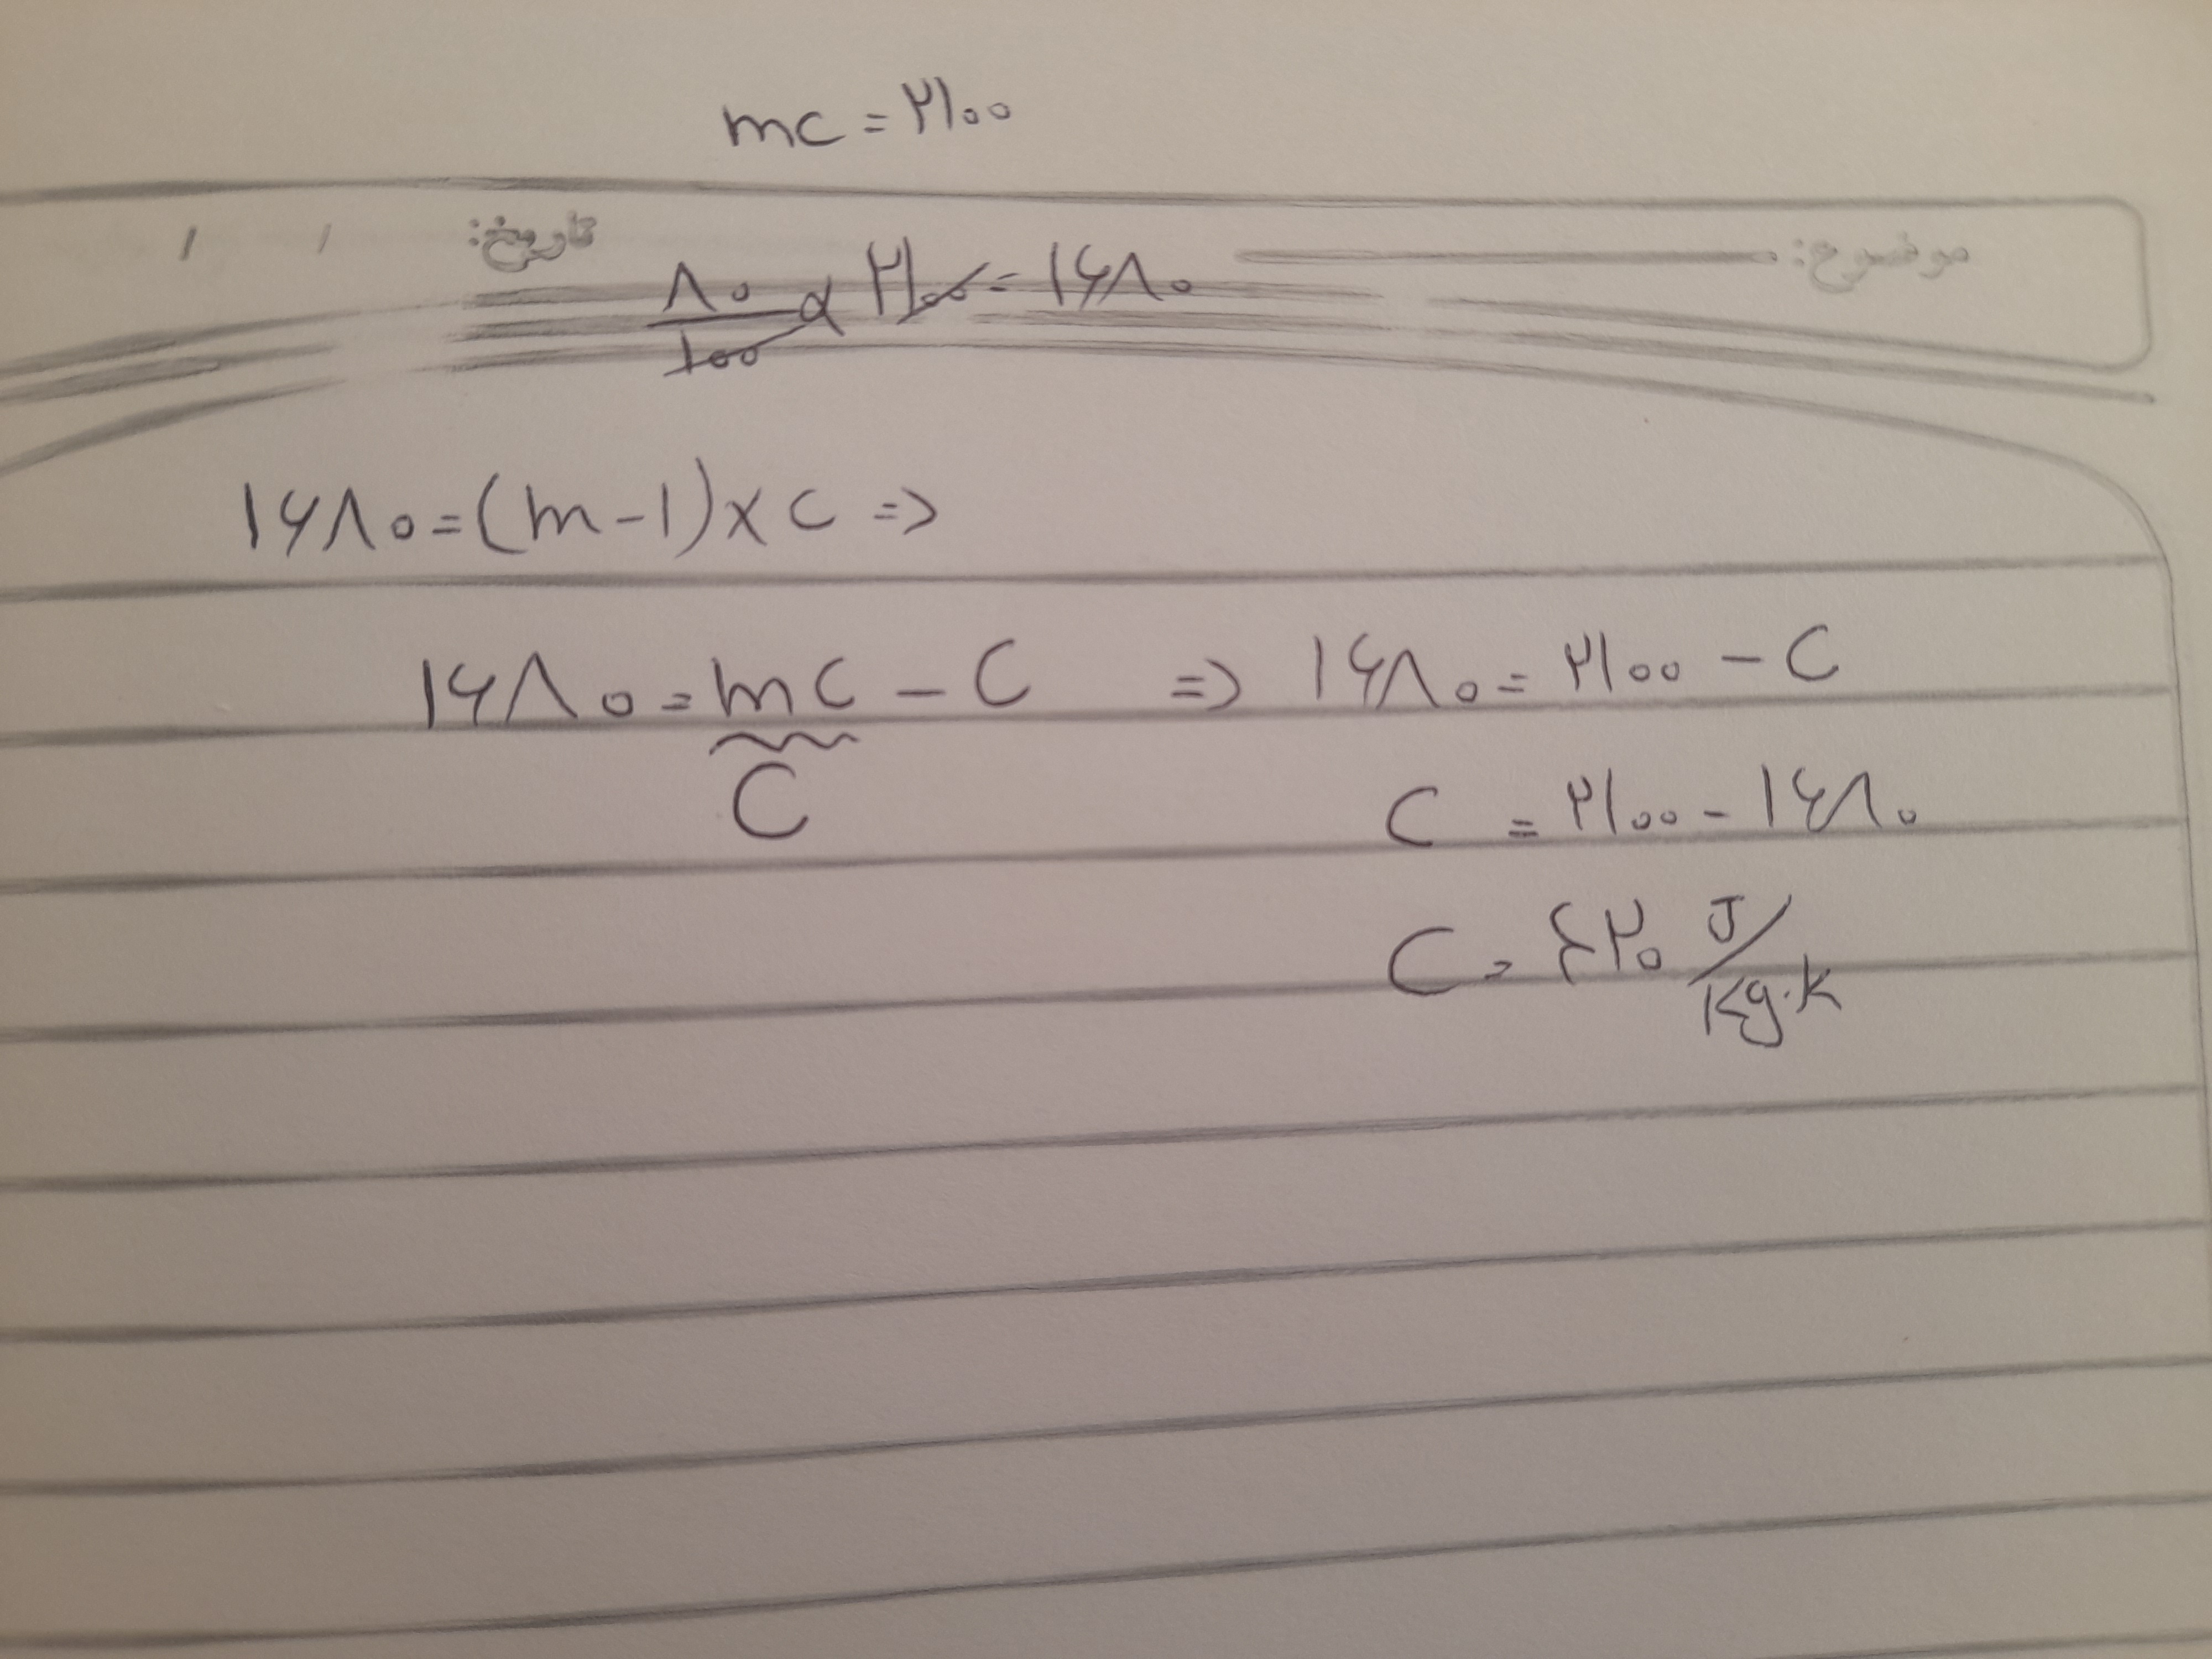 mc = ۲۱۰۰
موضوع: تاریخ: / /
۸۰/۱۰۰ × ۲۱۰۰ = ۱۶۸۰
۱۶۸۰ = (m - ۱) × c =>
۱۶۸۰ = mc - c => ۱۶۸۰ = ۲۱۰۰ - c
C
C = ۲۱۰۰ - ۱۶۸۰
C = ۴۲۰ J/kg.K